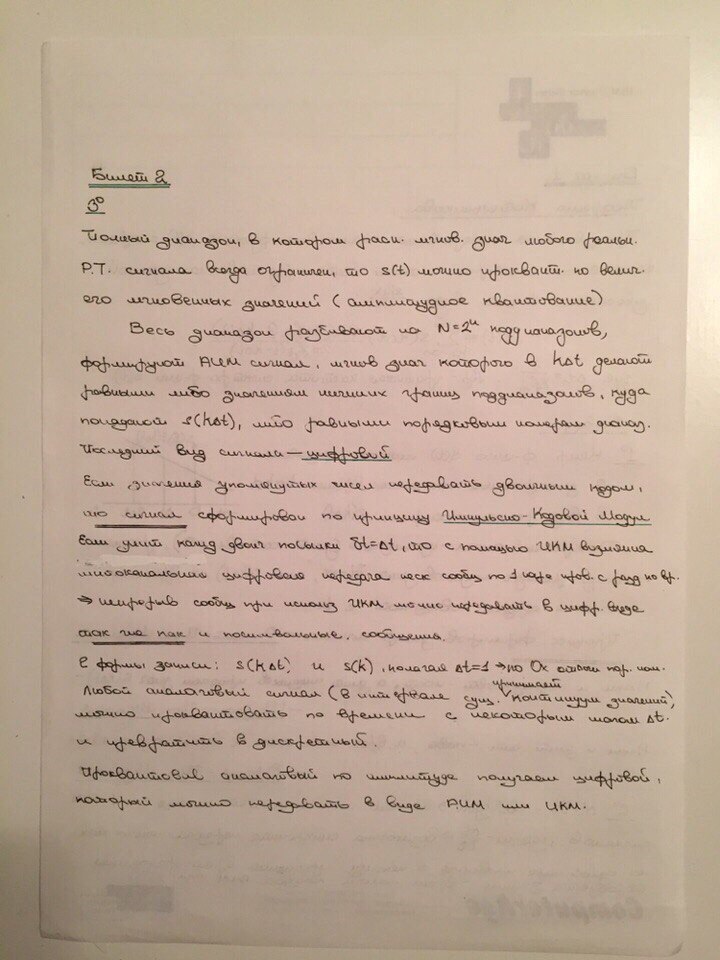 Билет 2
3°
Полный диапазон, в котором расп. мгнов. знач любого реальн.
Р.Т. сигнала всегда ограничен, то s(t) можно проквант. по велич.
его мгновенных значений (амплитудное квантование)
Весь диапазон разбивают на N=2ⁿ поддиапазонов,
формируют АИМ сигнал, мгнов знач которого в kΔt делают
равными либо значениям нижних границ поддиапазолов, куда
попадают s(kΔt), либо равными порядковым номерам диапаз.
Последний вид сигнала – цифровой
Если значения упомянутых чисел передавать двоичным кодом,
то сигнал сформирован по принципу Импульсно-Кодовой Модул
Если длит кажд двоич посылки δt=Δt, то с помощью ИКМ возможна
многоканальная цифровая передача неск сообщ по 1 пров. с разд по вр.
⇒ непрерыв сообщ при использ ИКМ можно передавать в цифр. виде
так же как и посимвальные. сообщения.
2 формы записи: s(kΔt) и s(k), полагая Δt=1 → по Ох отклад пор. ном.
Любой аналаговый сигнал (в интервале сущ. принимает континуум значений),
можно проквантовать по времени с некоторым шагом Δt.
и превратить в дискретный.
Проквантовав аналаговый по амплитуде получаем цифровой,
который можно передавать в виде АИМ или ИКМ.